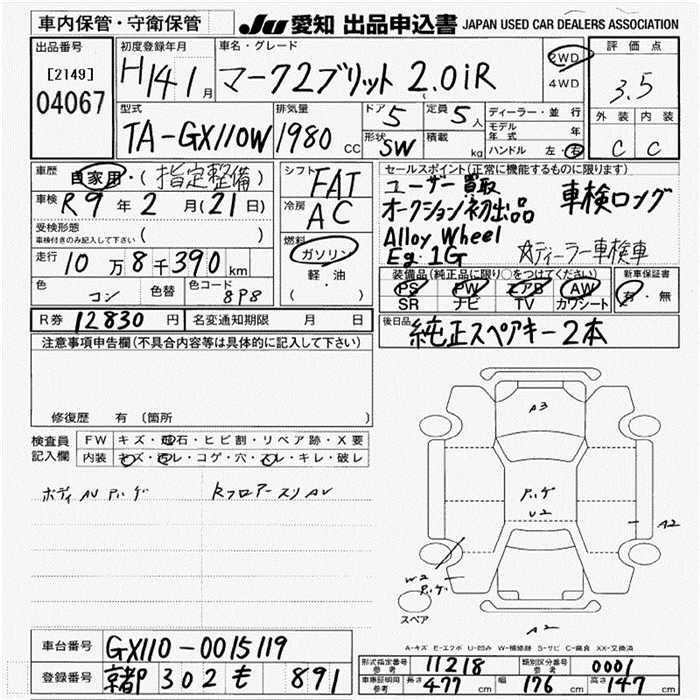 車内保管・守衛保管 JU 愛知 出品申込書 JAPAN USED CAR DEALERS ASSOCIATION
出品番号 初度登録年月 車名・グレード 2WD 4WD 評価点
[2149] 04067 H14 1月 マーク2ブリット 2.0iR 3.5
型式 排気量 ドア 5 定員 5人 ディーラー・並行 外装 内装
TA-GX110W 1980 CC 形状 SW 積載 kg モデル年式 年 C C
ハンドル 左・右
車歴 自家用・(指定整備) シフト FAT セールスポイント(正常に機能するものに限ります)
車検 R9年2月(21日) 冷房 AC ユーザー買取 車検ロング
受検形態 ( ) オークション初出品
車検付きのみ記入して下さい 燃料 Alloy Wheel
走行 10万8千390km ガソリン Eg. 1G ☆ディーラー車検車
色 コン 色替 色コード 8P8 軽・油 ( )
装備品(純正品に限り○をつけてください) 新車保証書
PS PW エアB AW 有・無
SR ナビ TV カワシート
R券 12830円 名変通知期限 月 日 後日品 純正スペアキー2本
注意事項申告欄(不具合内容等は具体的に記入して下さい)
修復歴 有 (箇所
検査員記入欄 FW キズ・飛石・ヒビ割・リペア跡・X要
内装 キズ・汚レ・コゲ・穴・スレ・キレ・破レ
A3
U2
A2
W2
スペア
A2
A-キズ E-エクボ U-凹み W-補修跡 S-サビ C-腐食 XX-交換済
車台番号 GX110-0015119
登録番号 京都 302 も 891
形式指定番号 参考 11218 類別区分番号 参考 0001
車検証記載 参考 長さ 477cm 幅 176cm 高さ 147cm